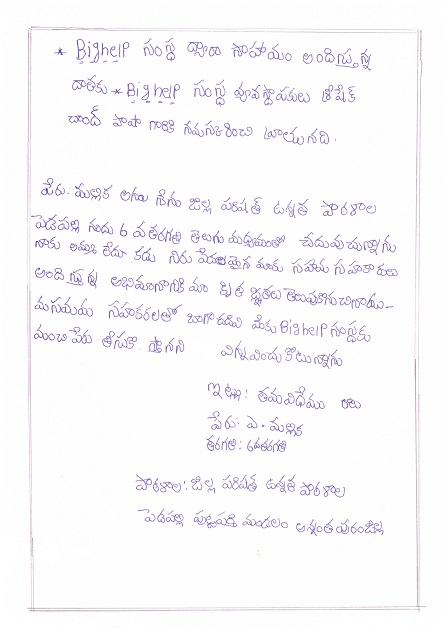 * Bighelp సంస్థ ద్వారా సాహాయం అందిస్తున్న
దాతకు * Bighelp సంస్థ వ్యవస్థాపకులు శేషేక్
చాంద్ పాషా గారికి నమస్కరించి వ్రాయునది.
పేరు: మల్లిక అను నేను జిల్ల పరిషత్ ఉన్నత పాఠశాల
పెడపల్లి నందు 6 వ తరగతి తెలుగు మధ్యమంతో చదువుచున్నాను
నాకు అమ్మ లేదు కడు నిరు పేద మైన మాకు సహాయ సహకారలు
అందిస్తున్న అభిమానానికి మా కృతజ్ఞతలు
సహకారలతో బాగా చదివి మీకు Bighelp సంస్థకు
మంచి పేరు తీసుకొ స్తానని విన్నవించు కొటున్నాను
ఇట్లు: తమ విధేయు రాలు
పేరు: ఎ. మల్లిక
తరగతి: 6వతరగతి
పాఠశాల: జిల్ల పరిషత్ ఉన్నత పాఠశాల
పెడపల్లి పుట్టపర్తి మండలం అనంతపురంజిల్ల